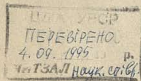 ПЕРЕВІРЕНО
4.09.1995 р.
ТЗАЛ наук. співр.